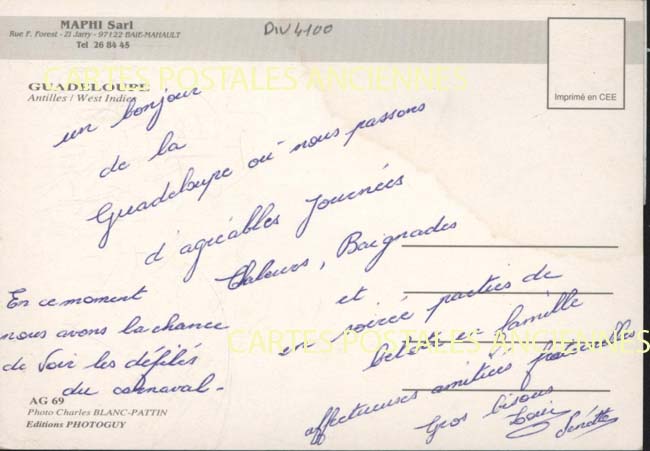 MAPHI Sarl
Rue F. Forest - ZI Jarry - 97122 BAIE-MAHAULT
Tel 26 84 45
DIV4100
Imprimé en CEE
CARTES POSTALES ANCIENNES
GUADELOUPE
Antilles / West Indies
un bonjour
de la
Guadeloupe où nous passons
d'agréables journées
Chaleurs, Baignades
et
en soirée parties de
belote en famille
affectueuses amitiés fraternelles
Gros bisous
En ce moment
nous avons la chance
de voir les défilés
du carnaval -
CARTES POSTALES ANCIENNES
AG 69
Photo Charles BLANC-PATTIN
Editions PHOTOGUY